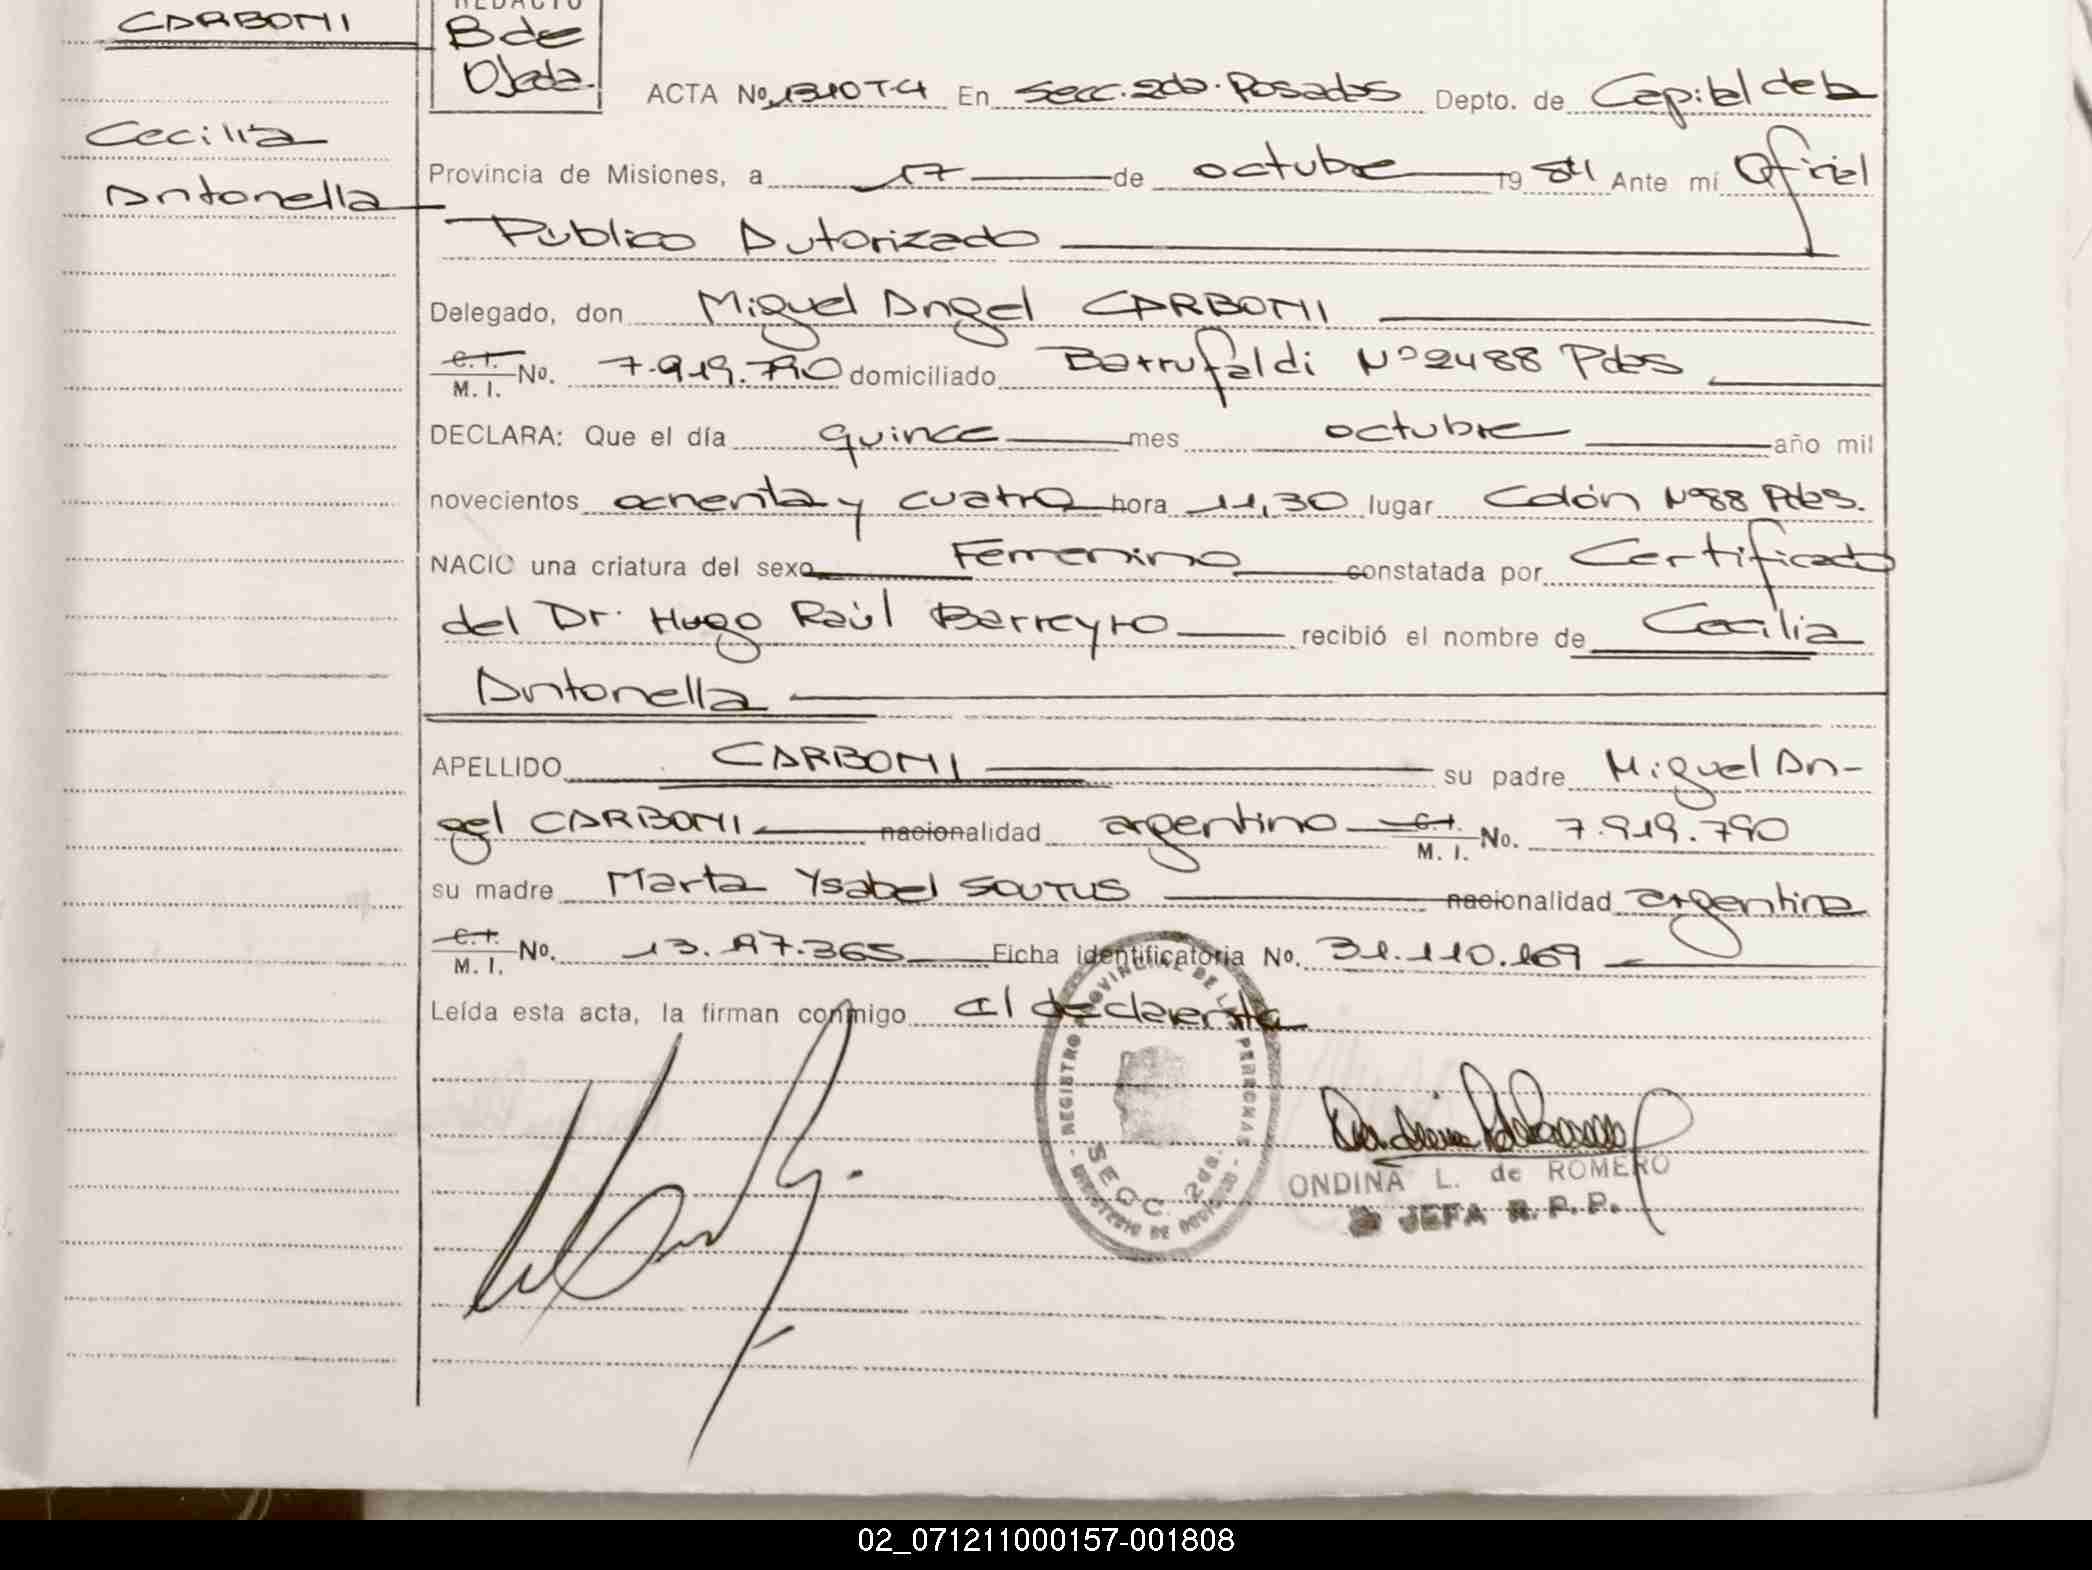 CARBONI
REDACTO
B de
Ojeda.
Cecilia
Antonella
ACTA No 1310T4 En Secc. 2da. Posadas Depto. de Capital de la
Provincia de Misiones, a 17 de octubre 19 84 Ante mí Oficial
Público Autorizado
Delegado, don Miguel Angel CARBONI
C. I. / M. I. No. 7.919.790 domiciliado Barrufaldi Nº 2488 Pdas
DECLARA: Que el día quince mes octubre año mil
novecientos ochenta y cuatro hora 11,30 lugar Colón Nº88 Pdas.
NACIO una criatura del sexo Femenino constatada por Certificado
del Dr. Hugo Raúl Barreyro recibió el nombre de Cecilia
Antonella
APELLIDO CARBONI su padre Miguel An-
gel CARBONI nacionalidad argentino C. I. / M. I. No. 7.919.790
su madre Marta Ysabel SOUTUS nacionalidad argentina
C. I. / M. I. No. 13. 365 Ficha identificatoria No. 31.110.169
Leída esta acta, la firman conmigo el declarante
REGISTRO PROVINCIAL DE LAS PERSONAS
SECC. 2da.
MINISTERIO DE GOBIERNO
ONDINA L. de ROMERO
JEFA R. P. P.
02_071211000157-001808